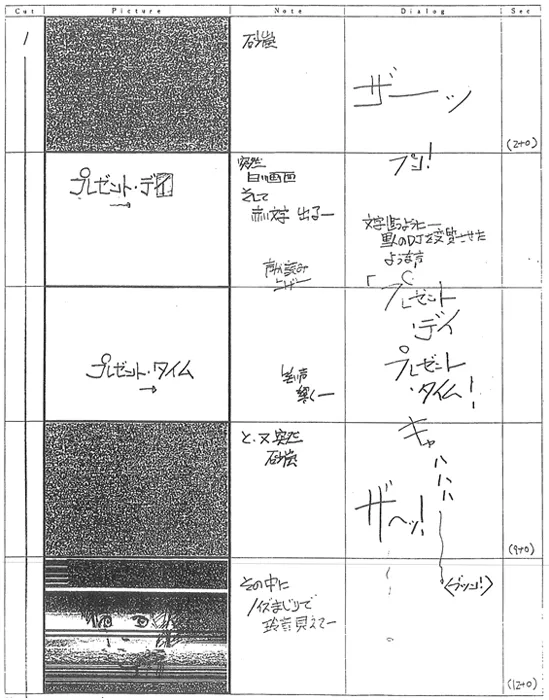 Cut
Picture
Note
Dialog
Sec
1
砂嵐
ザーッ
(2+0)
プレゼント・デイ
→
突然
白い画面
そして
赤い文字 出る―
プン!
黒人のDJを変質させた
ような声
「プレゼント
・デイ
プレゼント・タイム
→
笑い声
響く―
プレゼント
・タイム!
と、又突然
砂嵐
キャ
ハ
ハ
ハ
ザ〜ッ!
(9+0)
その中に
ノイズまじりで
玲音見えて―
〈ブツン!〉
(12+0)